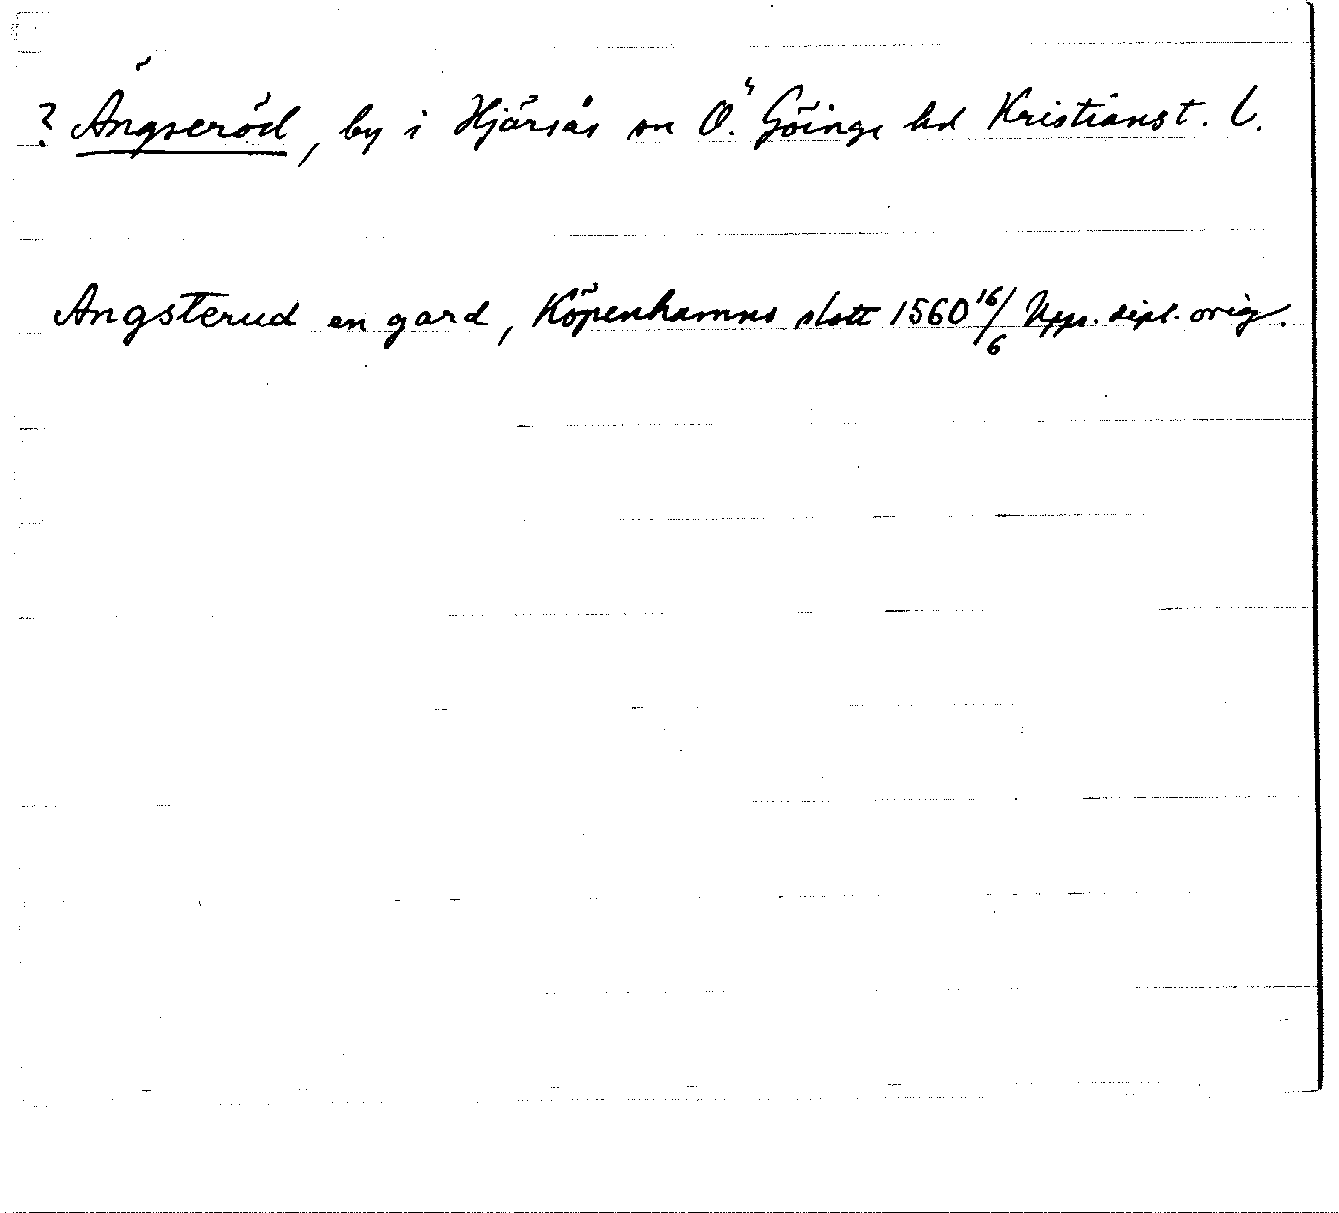 ? Ängseröd, by i Hjärsås sn Ö. Göinge hd Kristianst. l.
Angsterud en gard, Köpenhamns slott 1560 16/6 Upps. dipl. orig.